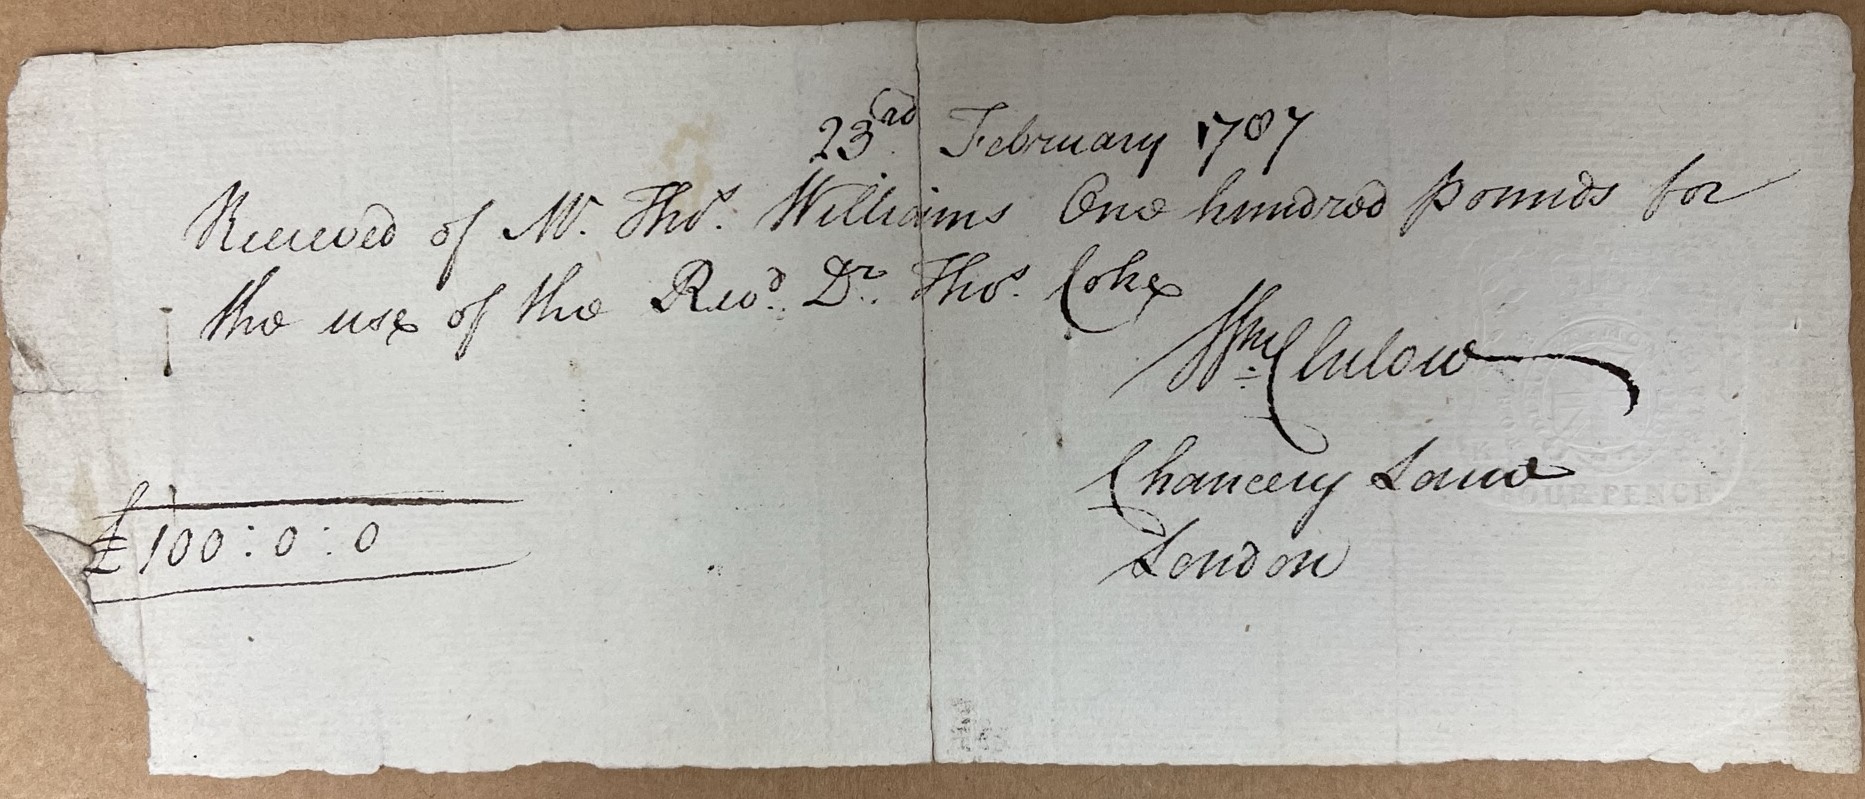 23rd February 1787
Received of Mr. Thos. Williams One hundred pounds for
the use of the Revd. Dr. Thos. Coke
Wm Clulow
Chancery Lane
London
£100:0:0
FOUR PENCE